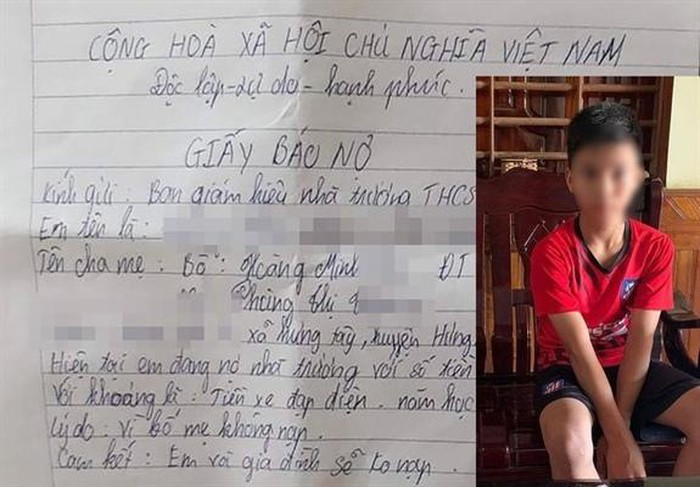 CỘNG HOÀ XÃ HỘI CHỦ NGHĨA VIỆT NAM
Độc lập - tự do - hạnh phúc.
GIẤY BÁO NỢ
Kính gửi : Ban giám hiệu nhà trường THCS
Em tên là :
Tên cha mẹ : Bố : Hoàng Minh ĐT
Phùng Thị
xã Hưng Tây, huyện Hưng
Hiện tại em đang nợ nhà trường với số tiền
Với khoảng kì : Tiền xe đạp điện . năm học
Lý do : Vì bố mẹ không nạp .
Cam kết : Em và gia đình sẽ ko nạp .